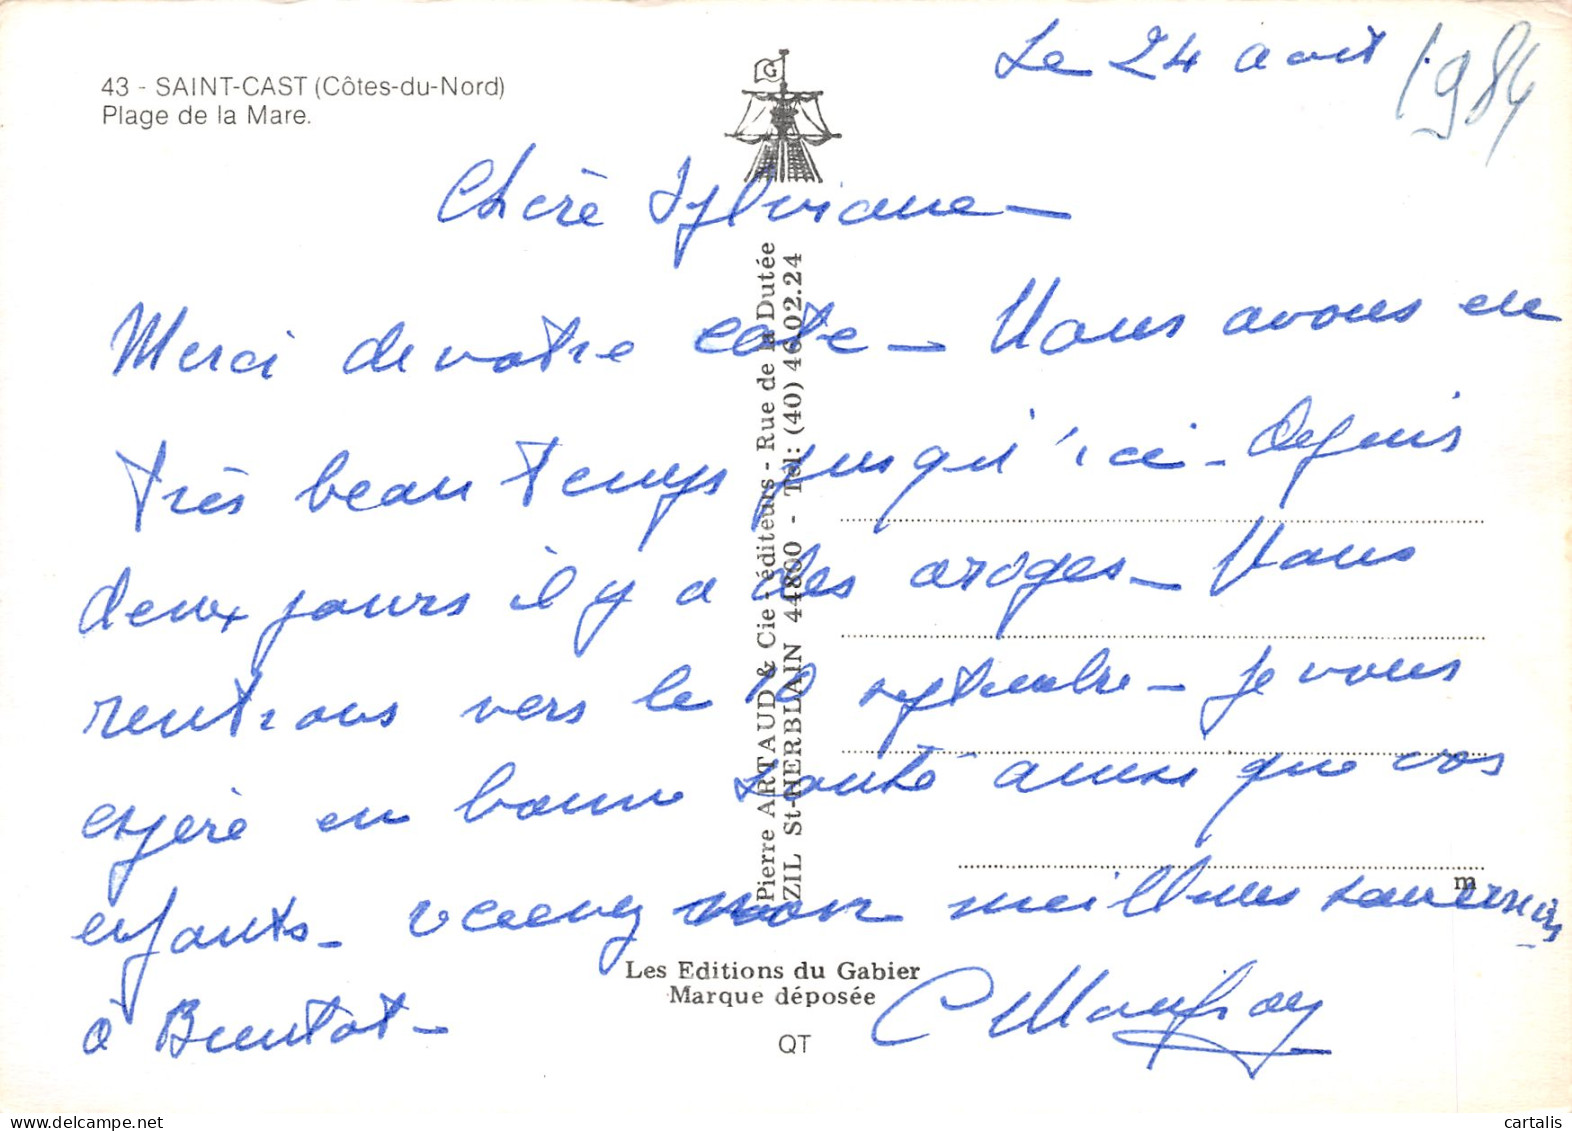 43 - SAINT-CAST (Côtes-du-Nord)
Plage de la Mare.
Le 24 août 1984
G
Chère Sylviane -
Merci de votre carte - Nous avons eu
très beau temps jusqu'ici - Depuis
deux jours il y a des orages - Nous
rentrons vers le 10 septembre - Je vous
espère en bonne santé ainsi que vos
enfants - recevez mon meilleur souvenir
à Bientôt -
Pierre ARTAUD & Cie éditeurs - Rue de la Dutée
ZIL St-HERBLAIN 44800 - Tel: (40) 46.02.24
m
Les Editions du Gabier
Marque déposée
QT
cartalis | delcampe.net